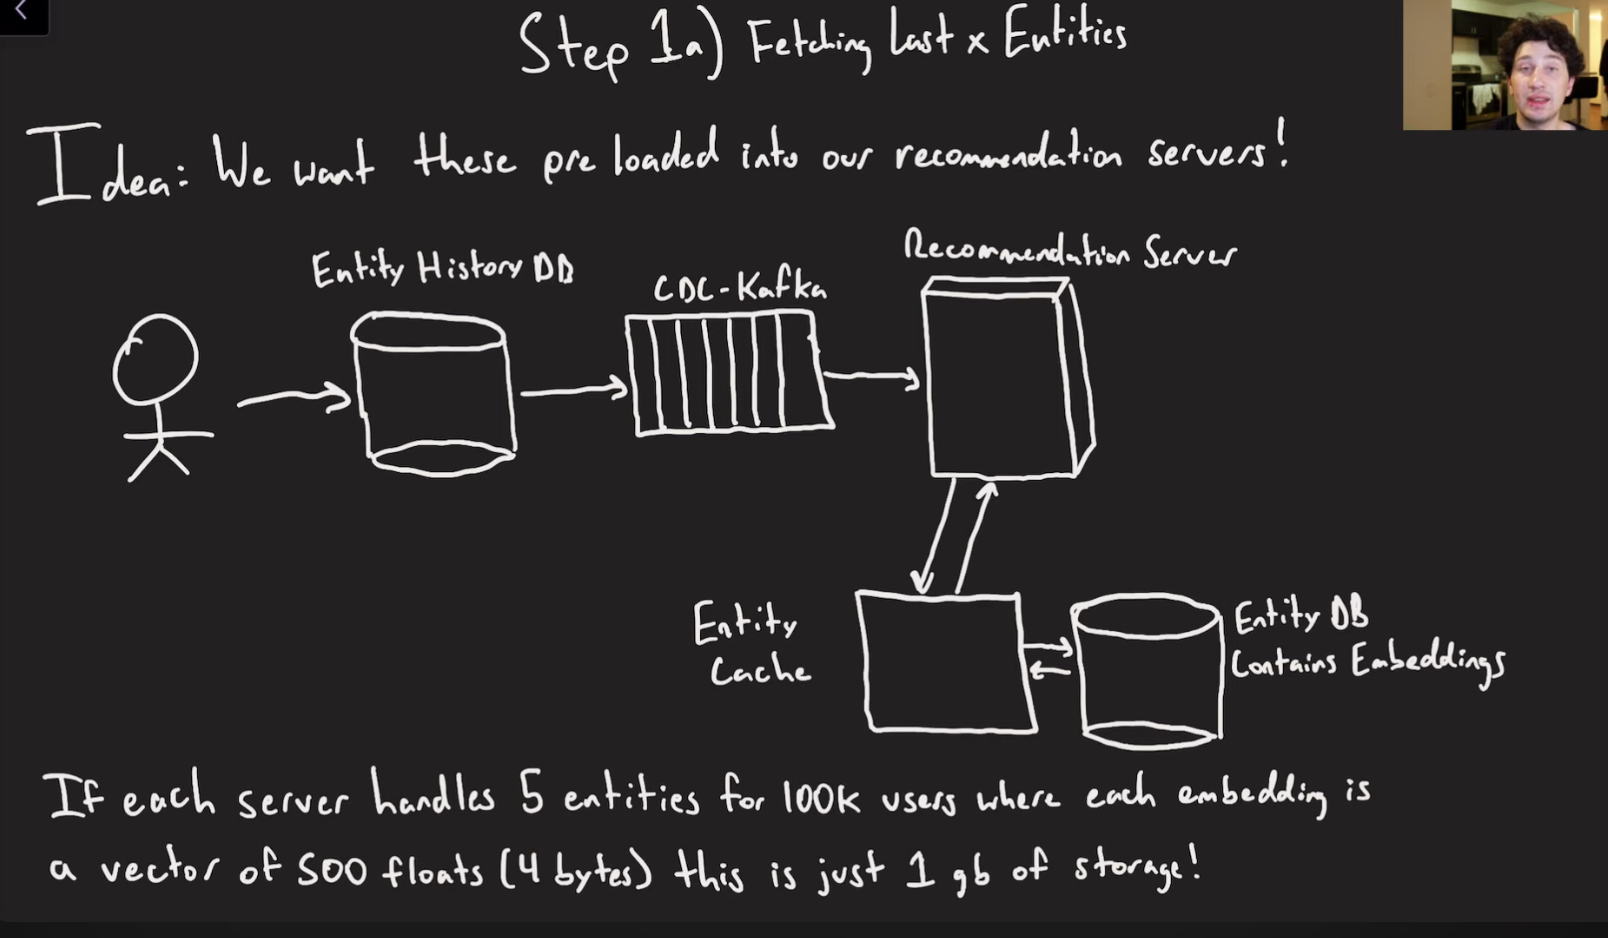 Step 1a) Fetching last x Entities
Idea: We want these pre loaded into our recommendation servers!
Entity History DB
CDC-Kafka
Recommendation Server
Entity
Cache
Entity DB
Contains Embeddings
If each server handles 5 entities for 100k users where each embedding is
a vector of 500 floats (4 bytes) this is just 1 gb of storage!